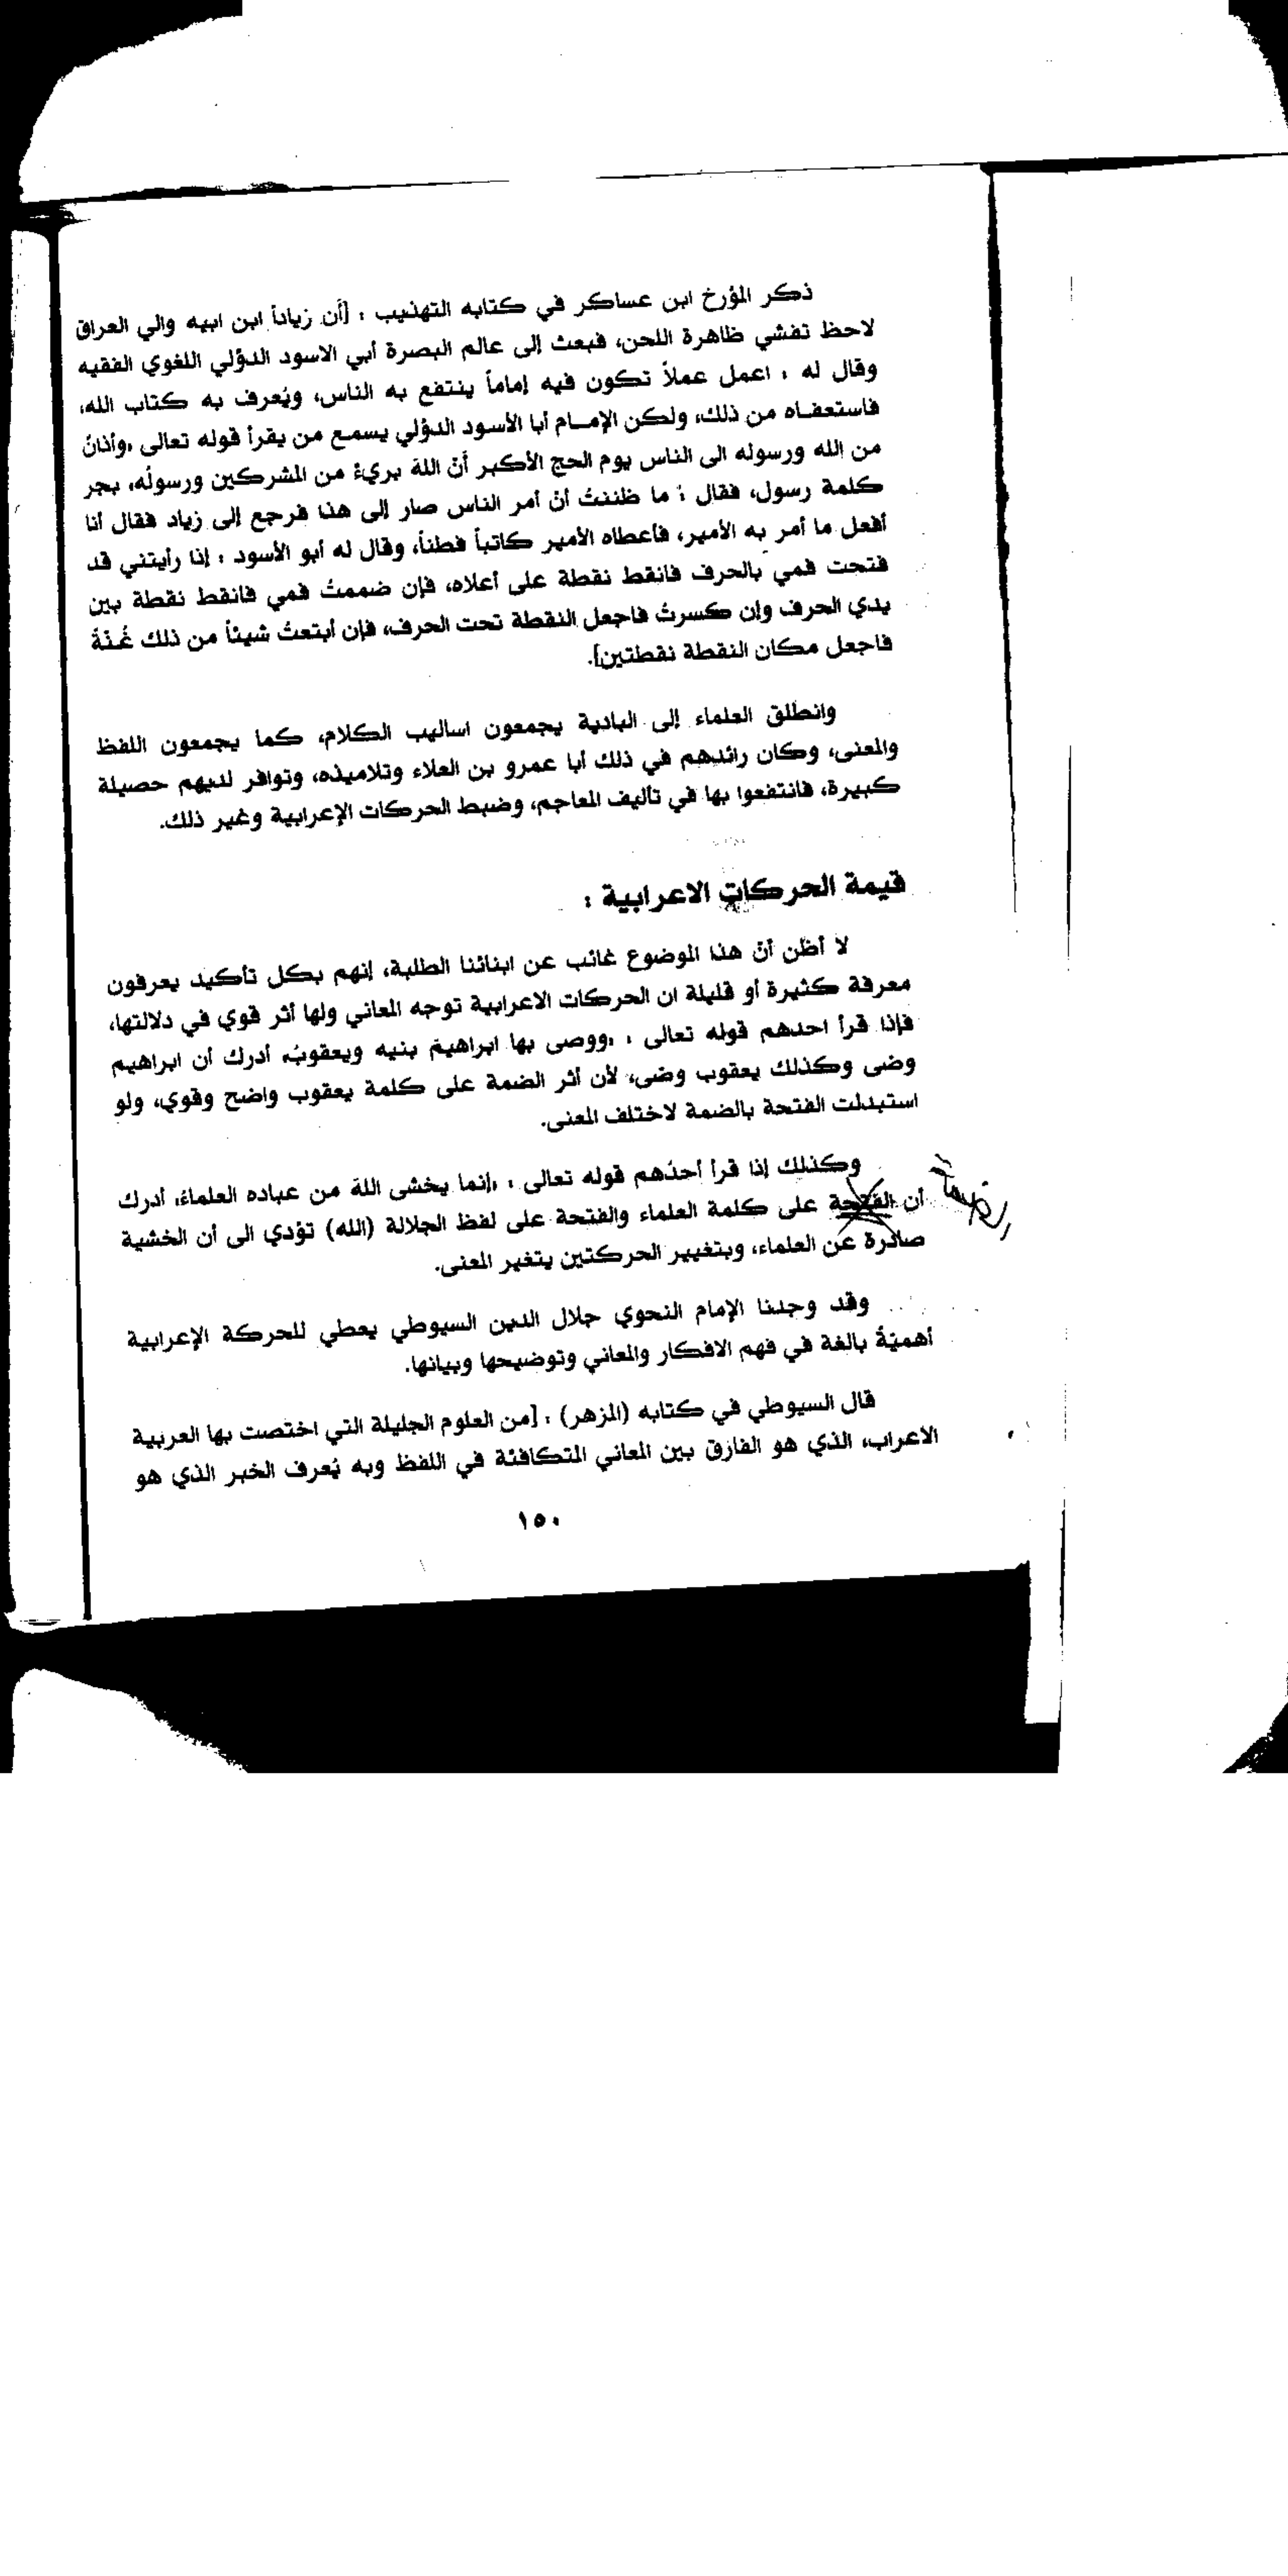 ذكر المؤرخ ابن عساكر في كتابه التهذيب : [أن زياداً ابن ابيه والي العراق
لاحظ تفشي ظاهرة اللحن، فبعث إلى عالم البصرة أبي الاسود الدؤلي اللغوي الفقيه
وقال له : اعمل عملاً تكون فيه إماماً ينتفع به الناس، ويُعرف به كتاب الله،
فاستعفاه من ذلك، ولكن الإمام أبا الأسود الدؤلي يسمع من يقرأ قوله تعالى «وأذانٌ
من الله ورسوله الى الناس يوم الحج الأكبر أنّ اللهَ بريءٌ من المشركين ورسولُه» بجر
كلمة رسول، فقال : ما ظننتُ أنّ أمر الناس صار إلى هذا فرجع إلى زياد فقال أنا
أفعل ما أمر به الأمير، فأعطاه الأمير كاتباً فطناً، وقال له أبو الأسود : إذا رأيتني قد
فتحت فمي بالحرف فانقط نقطة على أعلاه، فإن ضممتُ فمي فانقط نقطة بين
يدي الحرف وإن كسرتُ فاجعل النقطة تحت الحرف، فإن أبتعتُ شيئاً من ذلك غُنةً
فاجعل مكان النقطة نقطتين].
وانطلق العلماء إلى البادية يجمعون اساليب الكلام، كما يجمعون اللفظ
والمعنى، وكان رائدهم في ذلك أبا عمرو بن العلاء وتلاميذه، وتوافر لديهم حصيلة
كبيرة، فانتفعوا بها في تأليف المعاجم، وضبط الحركات الإعرابية وغير ذلك.
قيمة الحركات الاعرابية :
لا أظن أنّ هذا الموضوع غائب عن ابنائنا الطلبة، إنهم بكل تأكيد يعرفون
معرفة كثيرة أو قليلة ان الحركات الاعرابية توجه المعاني ولها أثر قوي في دلالتها،
فإذا قرأ احدهم قوله تعالى : «ووصى بها ابراهيمُ بنيه ويعقوبُ» أدرك أن ابراهيم
وضى وكذلك يعقوب وضى، لأن أثر الضمة على كلمة يعقوب واضح وقوي، ولو
استبدلت الفتحة بالضمة لاختلف المعنى.
وكذلك إذا قرأ أحدُهم قوله تعالى : «إنما يخشى اللهَ من عباده العلماءُ» أدرك
أن الفتحة على كلمة العلماء والفتحة على لفظ الجلالة (الله) تؤدي الى أن الخشية
الضمة
صادرة عن العلماء، وبتغيير الحركتين يتغير المعنى.
وقد وجدنا الإمام النحوي جلال الدين السيوطي يعطي للحركة الإعرابية
أهميّةً بالغة في فهم الافكار والمعاني وتوضيحها وبيانها.
قال السيوطي في كتابه (المزهر) : [من العلوم الجليلة التي اختصت بها العربية
الاعراب، الذي هو الفارق بين المعاني المتكافئة في اللفظ وبه يُعرف الخبر الذي هو
١٥٠